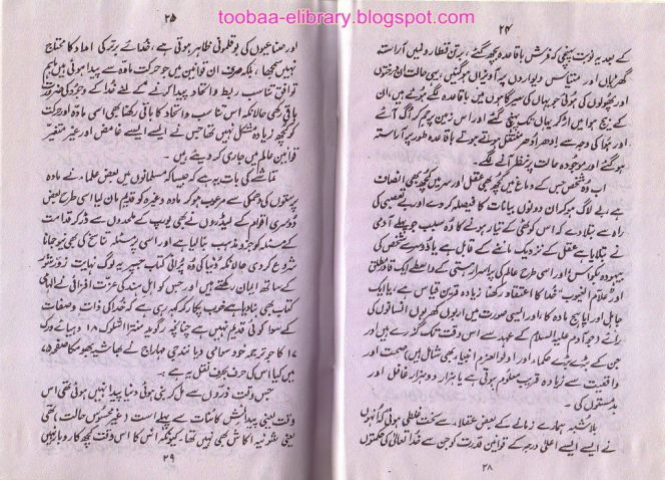 toobaa-elibrary.blogspot.com
۲۴
کے بعد یہ نوبت پہنچی کہ فرش باقاعدہ بچھ گئے، برتن قطار وں میں آراستہ
گھڑیاں اور متیاس دیواروں پہ آویزاں ہوگئیں، یہی حالت ان درختوں
اور پھولوں کی ہوئی جو یہاں کی سیرگاہوں میں باقاعدہ لگے ہوئے ہیں، ان
کے بیج ہوا میں اڑکر یہاں تک پہنچ گئے اور اس زمین پر جم کر اگ آئے
اور ہوا کی وجہ سے ادھر اُدھر منتقل ہوتے ہوتے باقاعدہ طور پر آراستہ
ہو گئے اور موجودہ حالت پر نظر آنے لگے
اب وہ شخص جس کے دماغ میں کچھ بھی عقل اور سر میں کچھ بھی انصاف
ہے بے لاگ ہوکر ان دونوں بیانات کا فیصلہ کر دے اور بے تعصبی کی
راہ سے بتلا دے کہ اس کوٹھی کے تیار ہونے کا وہ سبب جو پہلے آدمی
نے بتلایا ہے عقل کے نزدیک ماننے کے قابل ہے یا دوسرے شخص کی
بیہودہ بکواس، اور اسی طرح عالم کی پراسرار ہستی کے واسطے ایک قادر مطلق
اور علام الغیوب خدا کا اعتقاد رکھنا زیادہ قرین قیاس ہے، یا ایک
جاہل اور اپاہج مادہ کا، اور ایسی صورت میں اربوں کھربوں انسانوں کی
رائے (جو آدم علیہ السلام کے عہد سے اس وقت تک گزرے ہیں اور
جن کے بڑے بڑے حکماء اور اولوالعزم انبیاء بھی شامل ہیں) صحت اور
واقعیت سے زیادہ قریب معلوم ہوتی ہے یا ہزار دو ہزار غافل اور
بدمستوں کی۔
بلاشبہ ہمارے زمانے کے بعض عقلاء سے سخت غلطی ہوئی کہ انہوں
نے ایسے ایسے اعلیٰ درجہ کے قوانین قدرت کو جن سے خدا تعالیٰ کی حکمتوں
۲۸
۲۵
اور صناعیوں کی بوقلمونی ظاہر ہوتی ہے، خدائے برتر کی امداد کا محتاج
نہیں سمجھا، بلکہ صرف ان قوانین میں جو حرکت مادہ سے پیدا ہوئی ہیں باہم
توافق تناسب ربط و اتحاد پیدا کرنے کے لئے خدا کے وجود کی ضرورت
باقی رکھی حالانکہ اس تناسب و اتحاد کا باقی رکھنا بھی اسی مادہ اور حرکت
کو کچھ زیادہ مشکل نہیں تھا جس نے ایسے ایسے غامض اور غیر متغیر
قوانین عالم میں جاری کر دیئے ہیں۔
تماشے کی بات یہ ہے کہ جیسا کہ مسلمانوں میں بعض علماء نے مادہ
پرستوں کی دھمکی سے مرعوب ہو کر مادہ وغیرہ کو قدیم مان لیا اسی طرح بعض
دوسری اقوام کے لیڈروں نے بھی یورپ کے ملحدوں سے ڈر کر قدامت
کے مسئلہ کو جزو مذہب بنا لیا ہے اور اسی پر مسئلہ تناسخ کی بھی نیو جمانا
شروع کر دی حالانکہ دنیا کی وہ پرانی کتاب جس پر یہ لوگ نہایت زور شور
کے ساتھ ایمان رکھتے ہیں اور جس کو اہل ہند کی عزت افزائی نے الہامی
کتاب بھی بنا دیا ہے خوب پکار کر کہہ رہی ہے کہ خدا کی ذات و صفات
کے سوا کوئی قدیم نہیں ہے چنانچہ رگ وید منتر اشلوک ۱۸ دہیائے ورگ
۱۷ کا جو ترجمہ خود سوامی دیانندی مہاراج نے بھاشیہ بھومکا صفحہ،
میں کیا اس کی حرف بحرف نقل یہ ہے۔
جس وقت ذروں سے مل کر بنی ہوئی دنیا پیدا نہیں ہوئی تھی اس
وقت یعنی پیدائش کائنات سے پہلے است (غیر محسوس حالت) تھی
یعنی شونیہ اکاش بھی نہیں تھا، کیونکہ اس کا اس وقت کچھ کاروبار نہیں
۲۹